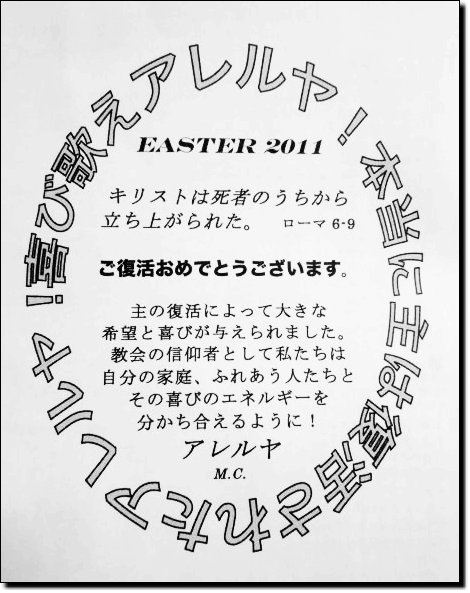 喜び歌えアレルヤ！本当に主は復活されたアレルヤ！
EASTER 2011
キリストは死者のうちから
立ち上がられた。 ローマ 6-9
ご復活おめでとうございます。
主の復活によって大きな
希望と喜びが与えられました。
教会の信仰者として私たちは
自分の家庭、ふれあう人たちと
その喜びのエネルギーを
分かち合えるように！
アレルヤ
M.C.